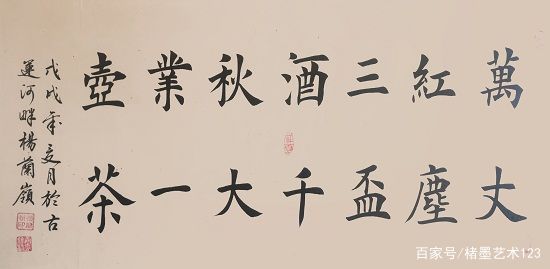 萬丈
紅塵
三盃
酒千
秋大
業一
壺茶
戊戌年夏月於古
運河畔楊蘭嶺
百家号/楮墨艺术123